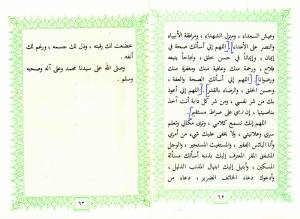 وعيش السعداء ، ومنزل الشهداء ، ومرافقة الأنبياء
والنصر على الأعداء . اللهم إني أسألك صحة في
إيمان ، وإيمانًا في حسن خلق ، ونجاحًا يتبعه
فلاح ، ورحمة منك وعافية منك ومغفرة منك
ورضوانًا . اللهم إني أسألك الصحة والعفة ،
وحسن الخلق ، والرضاء بالقدر . اللهم إني أعوذ
بك من شر نفسي ، ومن شر كل دابة أنت آخذ
بناصيتها ، إن ربي على صراط مستقيم .
اللهم إنك تسمع كلامي ، وترى مكاني وتعلم
سري وعلانيتي ، ولا يخفى عليك شيء من أمري
وأنا البائس الفقير ، والمستغيث المستجير ، والوجل
المشفق المقر المعترف إليك بذنبه أسألك مسألة
المسكين ، وأبتهل إليك ابتهال المذنب الذليل ،
وأدعوك دعاء الخائف الضرير ، دعاء من
٦٢
خضعت لك رقبته ، وذل لك جسمه ، ورغم لك
أنفه .
وصلى الله على سيدنا محمد وعلى آله وصحبه
وسلم .
٦٣